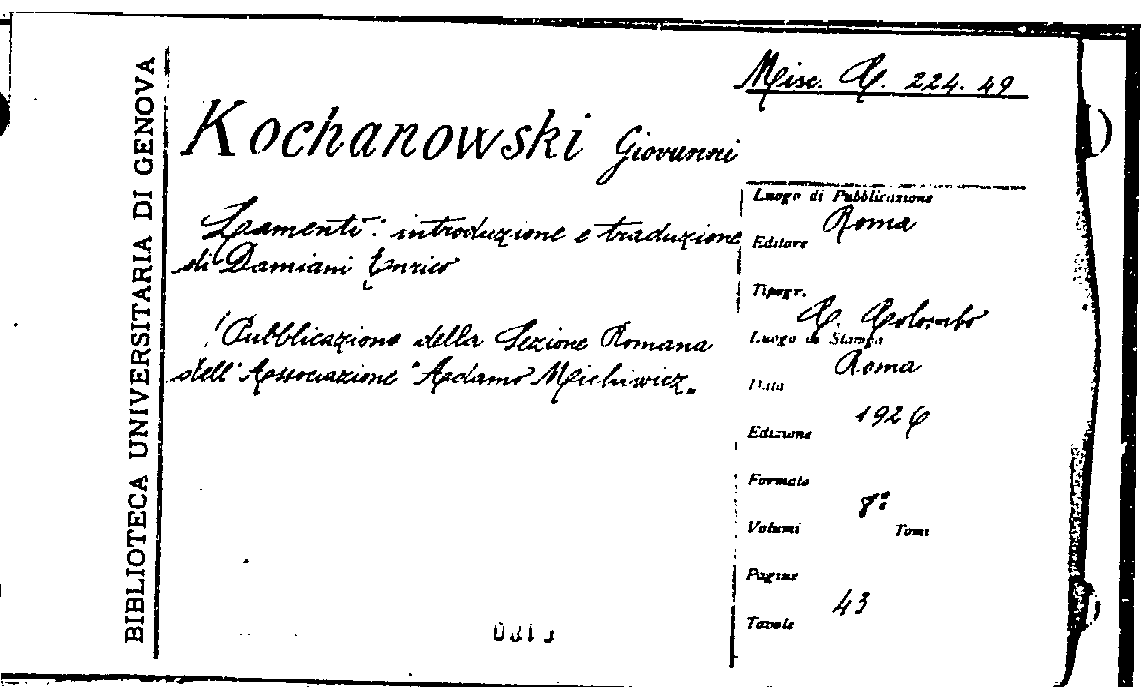 BIBLIOTECA UNIVERSITARIA DI GENOVA
Misc. C. 224. 49
Kochanowski Giovanni
Lamenti: introduzione e traduzione
di Damiani Enrico
(Pubblicazione della Sezione Romana
dell'Associazione "Adamo Mickiwicz„
Luogo di Pubblicazione
Roma
Editore
Tipogr.
C. Colombo
Luogo di Stampa
Roma
Data
1926
Edizione
Formato
8º
Volumi Tomi
Pagine
43
Tavole